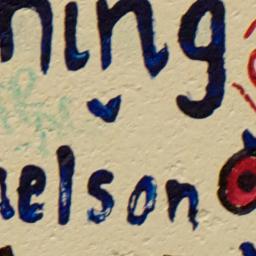 ning
elson